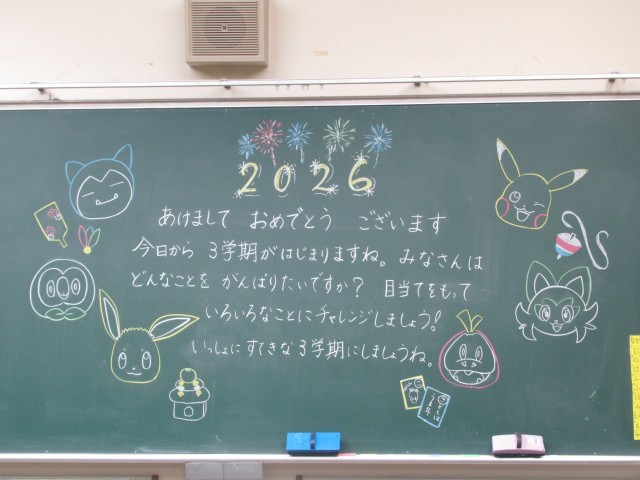 2026
あけまして おめでとう ございます
今日から 3学期がはじまりますね。みなさんは
どんなことを がんばりたいですか? 目当てをもって
いろいろなことにチャレンジしましょう!
いっしょに すてきな3学期にしましょうね。